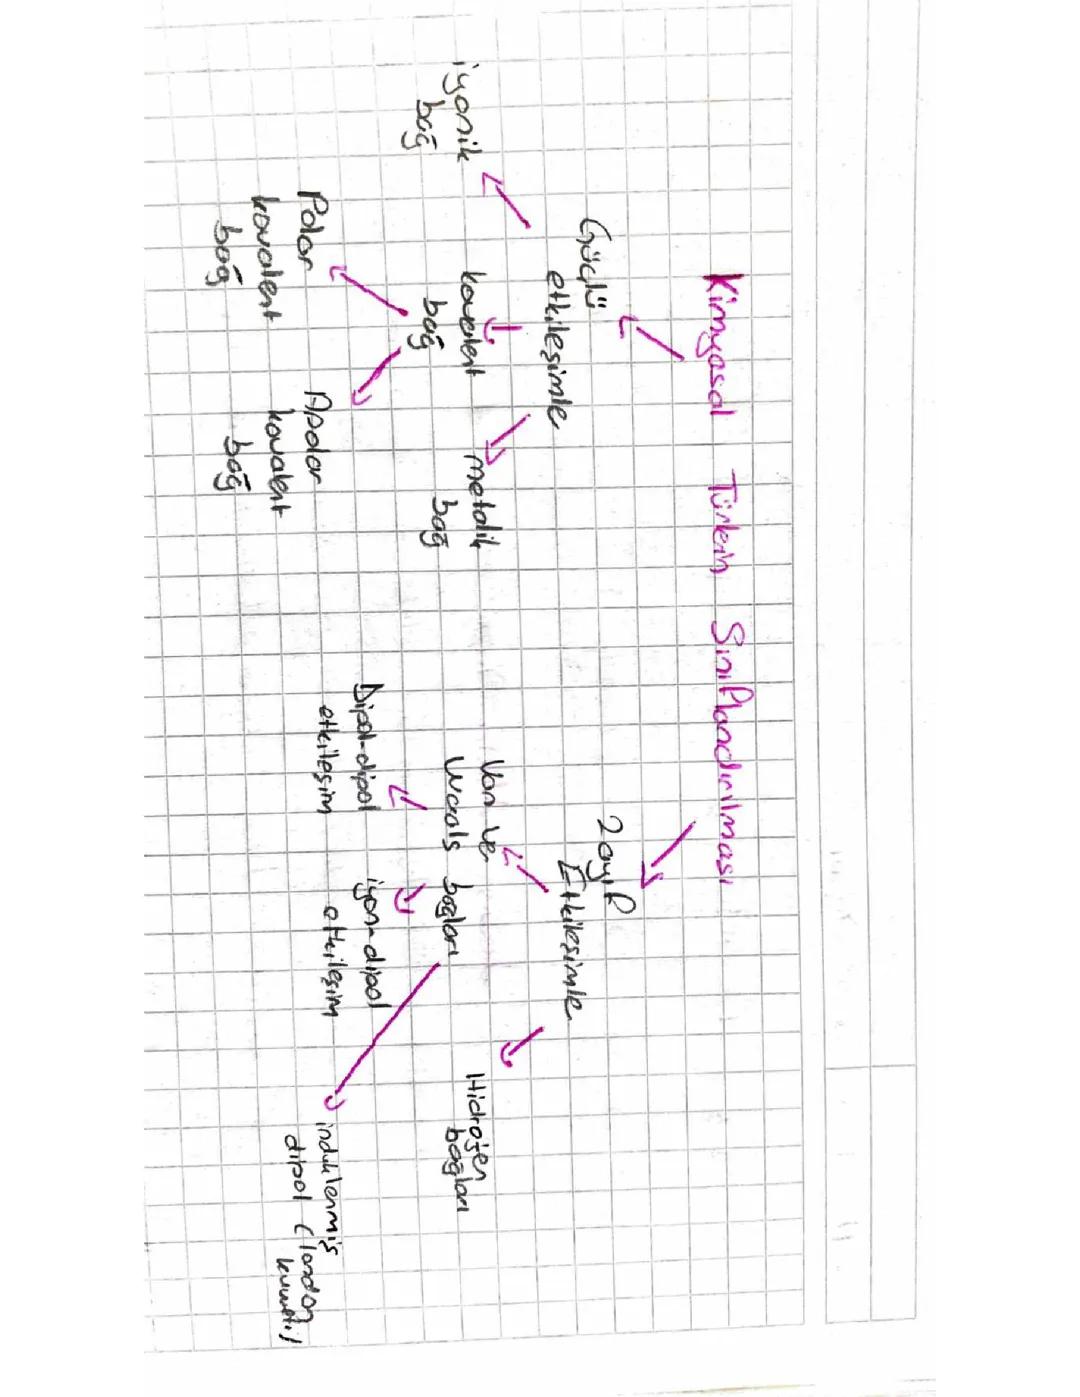 Kimyasal Türlerin Sınıflandırılması
Güçlü
etkileşimle
iyonik
bağ
kovalent
bağ
metalik
bağ
Polar
kovalent
bağ
Apolar
kovalent
bağ
Zayıf
Etkileşimle
Van der
Waals bağları
Hidrojen
bağları
Dipol-dipol
etkileşim
iyon-dipol
etkileşim
indüklenmiş
dipol (london
kuvveti)